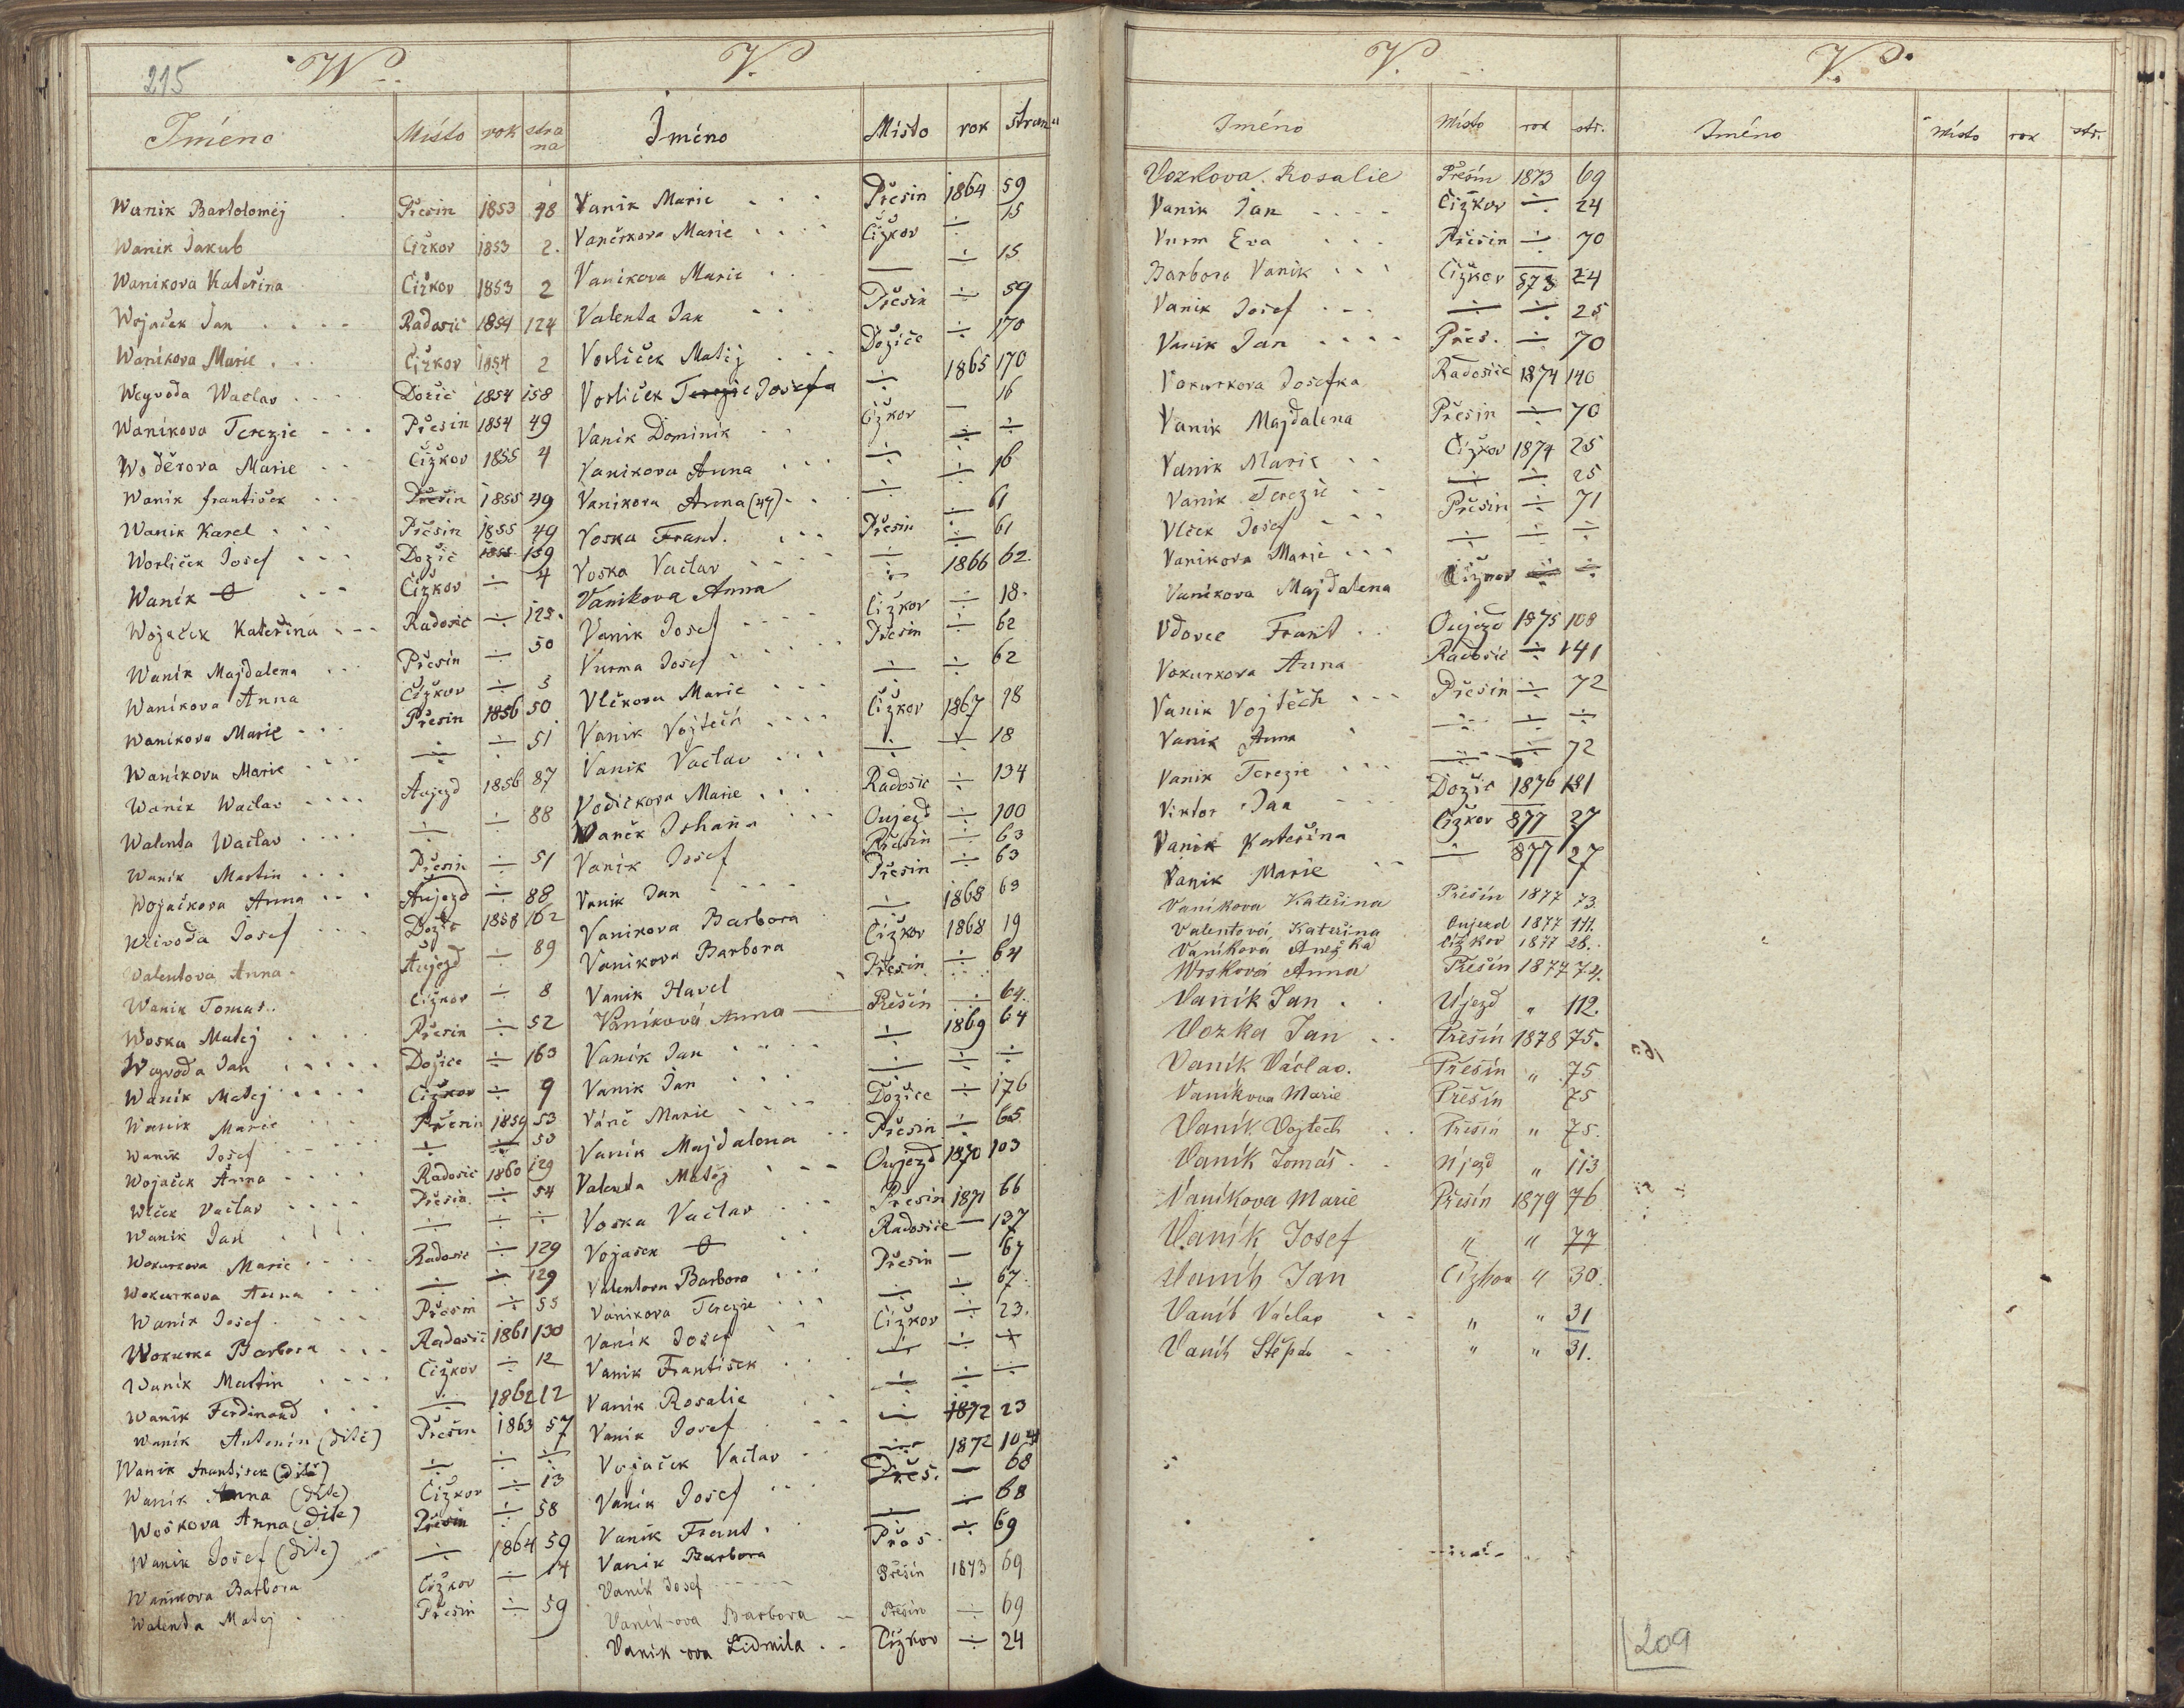 215
W.
Jméno Místo rok strana
Wanik Bartoloměj Přesin 1853 48
Wanik Jakub Čížkov 1853 2.
Wanikova Kateřina Čížkov 1853 2
Wojaček Jan Radosič 1854 124
Wanikova Marie Čížkov 1854 2
Weyvoda Waclav Dožič 1854 158
Wanikova Terezie Přesin 1854 49
Woděrova Marie Čížkov 1855 4
Wanik František Přesin 1855 49
Wanik Karel Přesin 1855 49
Worliček Josef Dožič 1855 159
Wanik Čížkov ÷ 4
Wojaček Kateřina Radosič ÷ 125.
Wanik Majdalena Přesin ÷ 50
Wanikova Anna Čížkov ÷ 5
Wanikova Marie Přesin 1856 50
Wanikova Marie ÷ ÷ 51
Wanik Waclav Aujezd 1856 87
Walenta Waclav ÷ ÷ 88
Wanik Martin Přesin ÷ 51
Wojačkova Anna Aujezd ÷ 88
Weivoda Josef Dožič 1858 162
Walentova Anna Aujezd ÷ 89
Wanik Tomas Čížkov ÷ 8
Woska Matěj Přesin ÷ 52
Weyvoda Jan Dožice ÷ 163
Wanik Matěj Čížkov ÷ 9
Wanik Marie Přesin 1859 53
Wanik Josef ÷ ÷ 53
Wojaček Anna Radosič 1860 129
Wlček Vaclav Přesin ÷ 54
Wanik Jan ÷ ÷ ÷
Wokurkova Marie Radosič ÷ 129
Wokurkova Anna ÷ ÷ 129
Wanik Josef Přesin ÷ 55
Wokurka Barbora Radosič 1861 130
Wanik Martin Čížkov ÷ 12
Wanik Ferdinand ÷ 1862 12
Wanik Antonín (dítě) Přesin 1863 57
Wanik František (dítě) ÷ ÷ ÷
Wanik Anna (dítě) Čížkov ÷ 13
Woškova Anna (dítě) Přesin ÷ 58
Wanik Josef (dítě) ÷ 1864 59
Wanikova Barbora Čížkov ÷ 14
Walenta Matěj Přesin ÷ 59
V.
Jméno Místo rok strana
Vanik Marie Přesin 1864 59
Vaněkova Marie Čížkov ÷ 15
Vanikova Marie — ÷ 15
Valenta Jan Přesin ÷ 59
Vorliček Matěj Dožice ÷ 170
Vorliček Terezie Josefa ÷ 1865 170
Vanik Dominik Čížkov — 16
Vanikova Anna ÷ ÷ ÷
Vanikova Anna (44) ÷ ÷ 16
Voska Frant. Přesin ÷ 61
Voska Vaclav ÷ ÷ 61
Vanikova Anna ÷ 1866 62.
Vanik Josef Čížkov ÷ 18.
Vurma Josef Přesin ÷ 62
Vlčkova Marie ÷ ÷ 62
Vanik Vojtěch Čížkov 1867 18
Vanik Vaclav ÷ ÷ 18
Vodičkova Marie Radosič ÷ 134
Waněk Johana Oujezd ÷ 100
Vanik Josef Přesin ÷ 63
Vanik Jan Přesin ÷ 63
Vanikova Barbora — 1868 63
Vanikova Barbora Čížkov 1868 19
Vanik Havel Přesin ÷ 64
Vaníková Anna Přešín ÷ 64.
Vanik Jan ÷ 1869 64
Vanik Jan ÷ ÷ ÷
Váně Marie Dožice ÷ 176
Vanik Majdalena Přesin ÷ 65
Valenta Matěj Oujezd 1870 103
Voska Vaclav Přesin 1871 66
Vojaček Radosice — 137
Valentova Barbora Přesin — 67
Vanikova Terezie ÷ ÷ 67.
Vanik Josef Čížkov ÷ 23.
Vanik František ÷ ÷ ÷
Vanik Rosalie ÷ ÷ ÷
Vanik Josef ÷ 1872 23
Vojaček Vaclav 1872
Vanik Josef Přes. — 68
Vanik Frant. — ÷ 68
Vanik Barbora Přes. ÷ 69
Vanik Josef Přešín 1873 69
Vanik-ova Barbora Přešín ÷ 69
Vanik-ova Lidmila Čížkov ÷ 24
V.
Jméno Místo rok str.
Vozkova Rosalie Přešín 1873 69
Vanik Jan Čížkov ÷ 24
Vurm Eva Přesin ÷ 70
Barbora Vanik Čížkov 873 24
Vanik Josef ÷ ÷ 25
Vanik Jan Přes. ÷ 70
Vokurkova Josefka Radosice 1874 140
Vanik Majdalena Přesin ÷ 70
Vanik Marie Čížkov 1874 25
Vanik Terezie ÷ ÷ 25
Vlček Josef Přesin ÷ 71
Vanikova Marie ÷ ÷ ÷
Vanikova Majdalena Čížkov ÷ ÷
Vdovec Frant Oujezd 1875 108
Vokurkova Anna Radosič ÷ 141
Vanik Vojtěch Přesin ÷ 72
Vanik Anna ÷ ÷ ÷
Vanik Terezie ÷ ÷ 72
Viktor Jan Dožic 1876 181
Vanik Kateřina Čížkov 877 27
Vanik Marie — 877 27
Vaníkova Kateřina Přešín 1877 73.
Valentová Kateřina Oujezd 1877 111.
Vaníková Anežka Čížkov 1877 28.
Wosková Anna Přešín 1877 74.
Vaník Jan Újezd " 112.
Vozka Jan Přešín 1878 75.
Vaník Václav. Přešín " 75
Vaníkova Marie Přešín 75
Vaník Vojtěch Přešín " 75.
Vaník Tomáš Újezd " 113
Vaníkova Marie Přešín 1879 76
Vaník Josef " " 77
Vaník Jan Čížkov " 30.
Vaník Václav " " 31
Vaník Štěpán " " 31.
V.
Jméno Místo rok str.
209